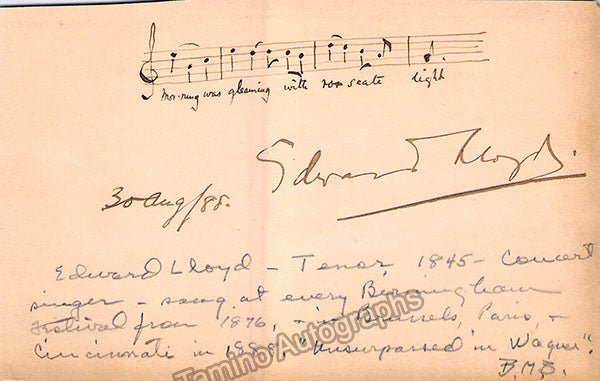 Mor-ning was gleaming with roseate light
Edward Lloyd.
30 Aug/88.
Edward Lloyd - Tenor, 1845 - Concert
singer - sang at every Birmingham
Festival from 1876, - in Brussels, Paris, +
Cincinnati in 1888, "Unsurpassed in Wagner".
B.M.B.
Tamino Autographs